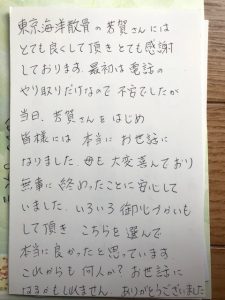 東京海洋散骨の芳賀さんには
とても良くして頂きとても感謝
しております。最初は電話の
やり取りだけなので不安でしたが
当日、芳賀さんをはじめ
皆様には本当にお世話に
なりました。母も大変喜んでおり
無事に終わったことに安心して
いました。いろいろ御心づかいも
して頂き こちらを選んで
本当に良かったと思っています
これからも何人か？お世話に
なるかもしれません。ありがとうございました